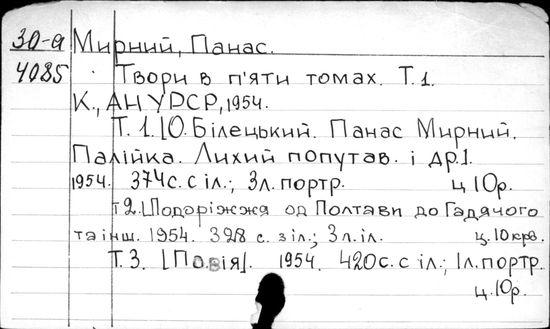 30-а Мирний, Панас.
4085 Твори в п'яти томах. Т.1.
К., АН УРСР, 1954.
Т. 1. [О. Білецький. Панас Мирний.
Палійка. Лихий попутав. і др].
1954. 374с. с іл.; 3л. портр. ц 10р.
т 2. [Подоріжжя од Полтави до Гадячого
та інш. 1954. 328 с. з іл.; 3 л. іл. ц. 10 крв.
Т. 3. [Повія]. 1954. 420с. с іл.; 1л. портр.
ц. 10р.